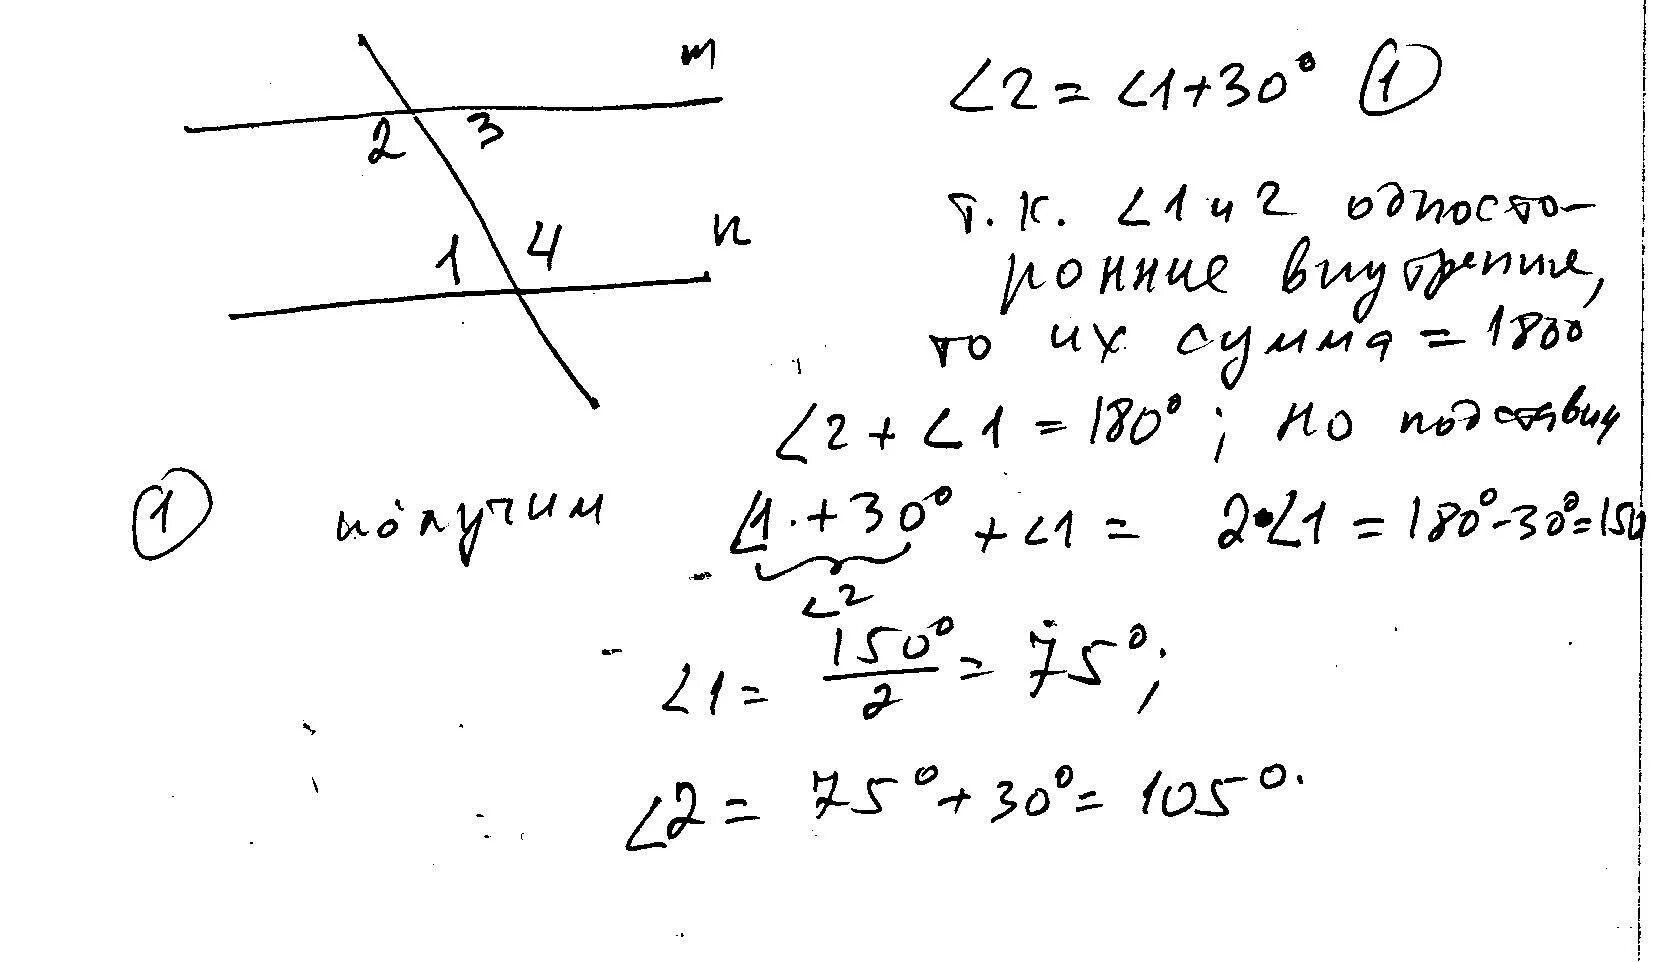 m
∠2 = ∠1+30° ①
2 3
т.к. ∠1 и 2 односто-
n
1 4
ронние внутренние,
то их сумма = 180°
∠2 + ∠1 = 180° ; но подставим
① получим ∠1 + 30° + ∠1 = 2·∠1 = 180° - 30° = 150
∠2
∠1 = 150°/2 = 75° ;
∠2 = 75° + 30° = 105°.